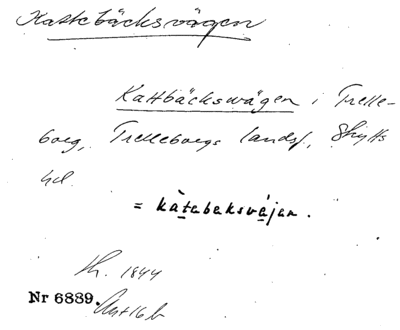 Kattebäcksvägen
Kattbäcksvägen i Trelle-
borg, Trelleborgs landsf., Skytts
hd.
= kàtabɛksvɛ́jən.
1844
Nr 6889.